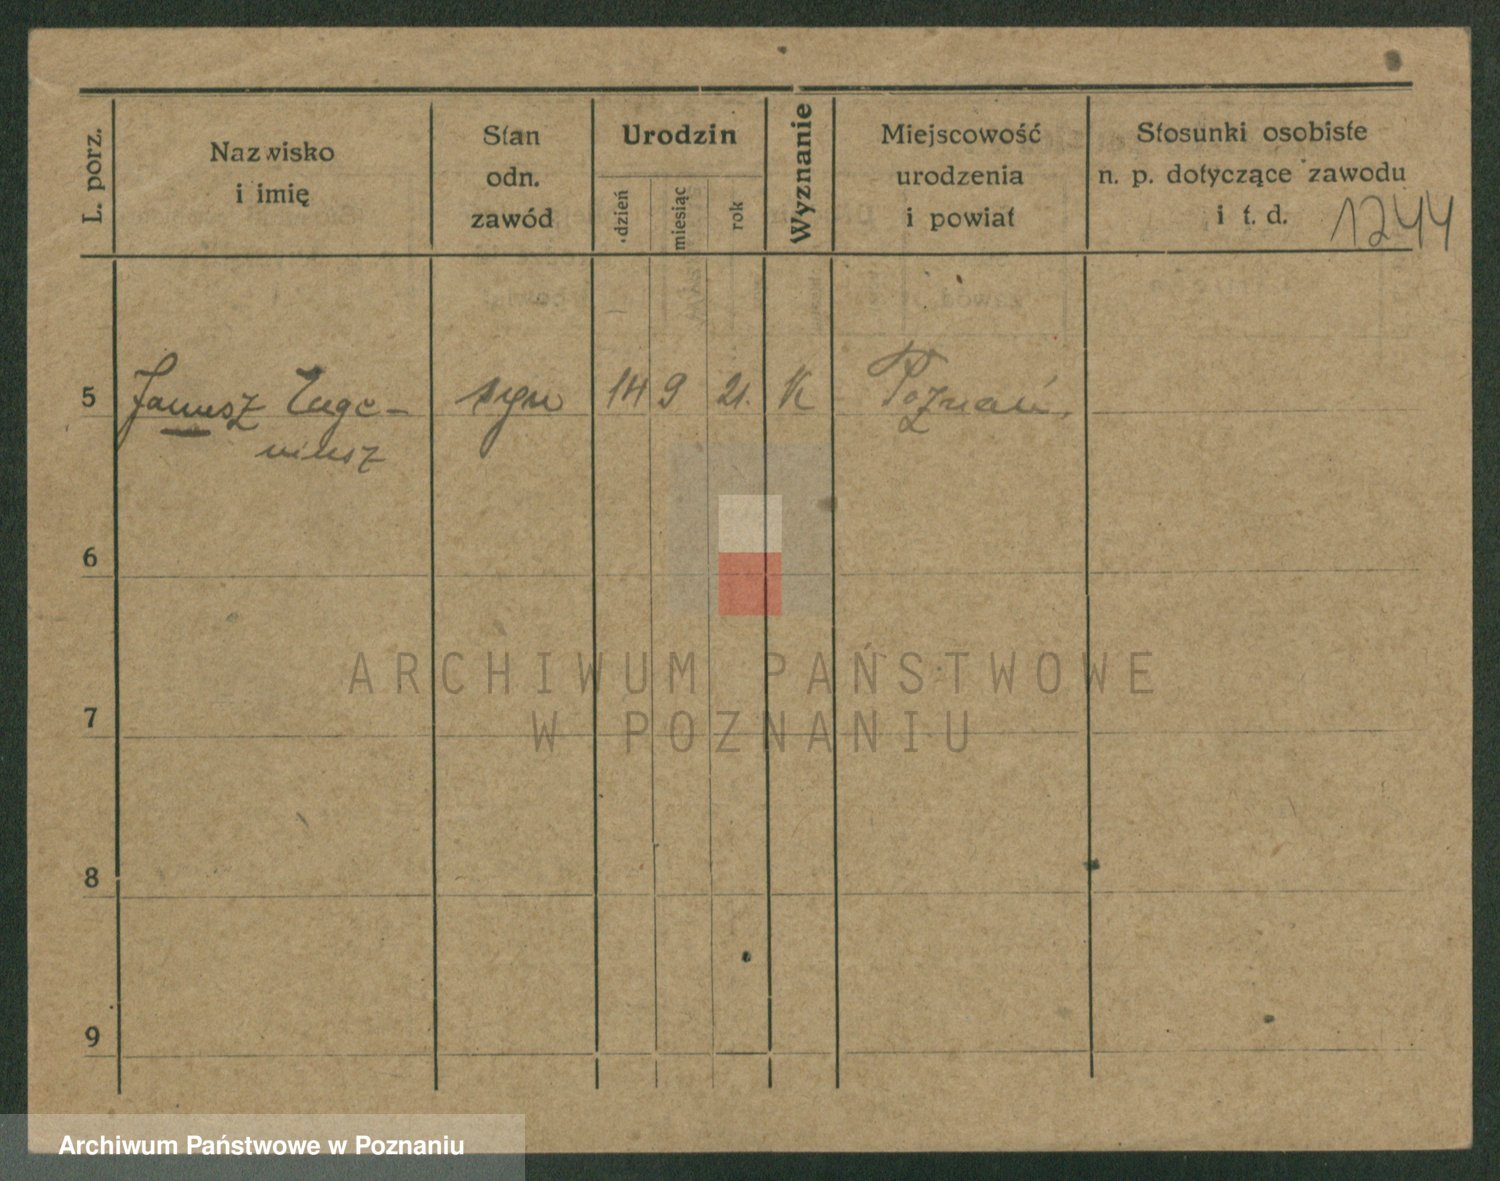 L. porz.
Nazwisko
i imię
Stan
odn.
zawód
Urodzin
dzień
miesiąc
rok
Wyznanie
Miejscowość
urodzenia
i powiat
Stosunki osobiste
n. p. dotyczące zawodu
i t. d.
1244
5 Janusz Euge- syn 14 9 21. K Poznań.
niusz
6
7
8
9
ARCHIWUM PAŃSTWOWE
W POZNANIU
Archiwum Państwowe w Poznaniu